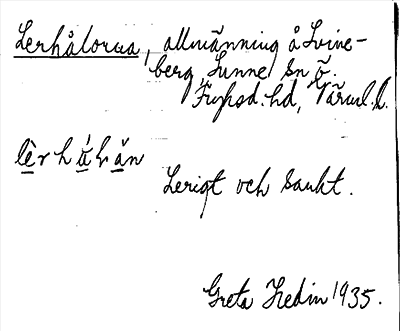 Lerhålorna, allmänning å Svine-
berg, Sunne sn ö.
Fryksd. hd, Värml. l.
lèrhå̀ɫăn
Lerigt och sankt.
Greta Hedin 1935.